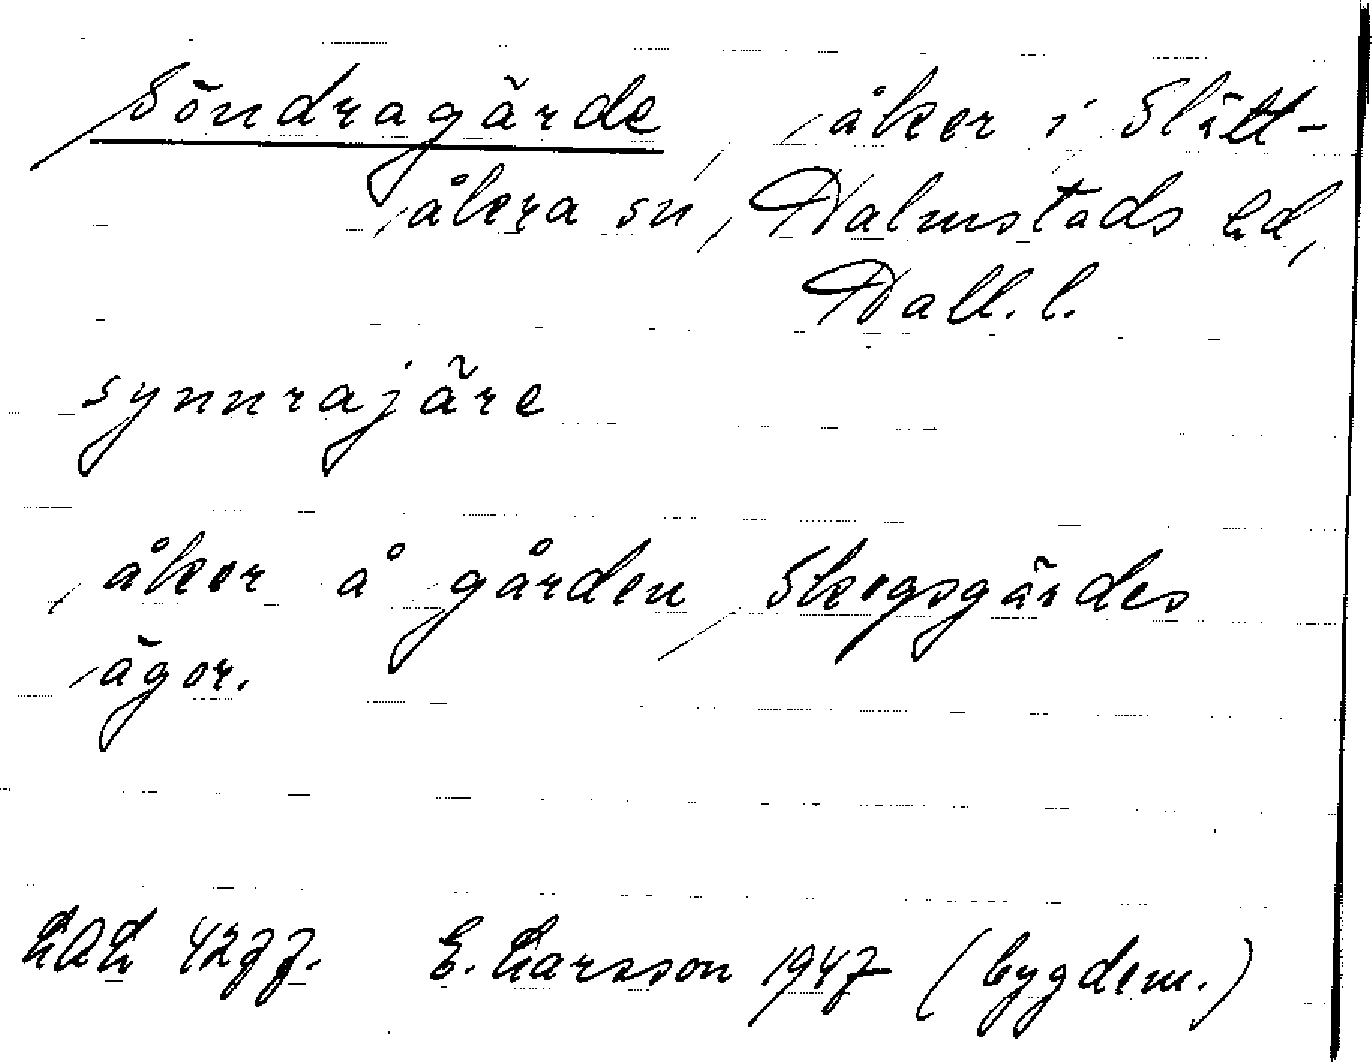 Söndragärde, åker i Slätt-
åkra sn, Halmstads hd,
Hall. l.
synnrajäre
åker å gården Skogsgärdes
ägor.
LAL 4277. E. Larsson 1947 (bygdem.)